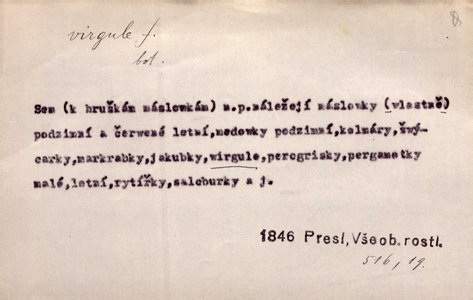 8
virgule f.
bot.
Sem (k hruškám máslovkám) n.p.náležejí máslovky (vlastně)
podzimní a červené letní,medovky podzimní,kolmáry,švý-
carky,markrabky,jakubky,virgule,perogrisky,pergametky
malé,letní,rytířky,salcburky a j.
1846 Presl, Všeob. rostl.
516, 19.